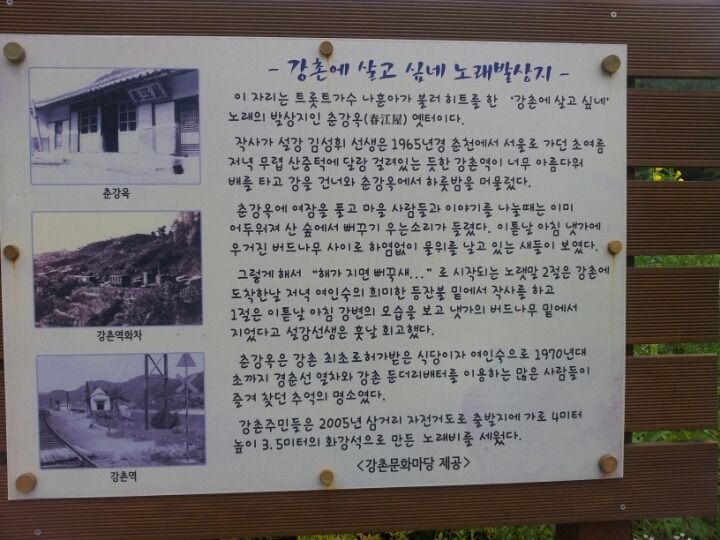 - 강촌에 살고 싶네 노래발상지 -
이 자리는 트롯트가수 나훈아가 불러 히트를 한 '강촌에 살고 싶네'
노래의 발상지인 춘강옥(春江屋) 옛터이다.
작사가 설강 김성휘 선생은 1965년경 춘천에서 서울로 가던 초여름
저녁 무렵 산중턱에 달랑 걸려있는 듯한 강촌역이 너무 아름다워
배를 타고 강을 건너와 춘강옥에서 하룻밤을 머물렀다.
춘강옥에 여장을 풀고 마을 사람들과 이야기를 나눌때는 이미
어두워져 산 숲에서 뻐꾸기 우는소리가 들렸다. 이튿날 아침 냇가에
우거진 버드나무 사이로 하염없이 물위를 날고 있는 새들이 보였다.
그렇게 해서 "해가 지면 뻐꾹새..." 로 시작되는 노랫말 2절은 강촌에
도착한날 저녁 여인숙의 희미한 등잔불 밑에서 작사를 하고
1절은 이튿날 아침 강변의 모습을 보고 냇가의 버드나무 밑에서
지었다고 설강선생은 훗날 회고했다.
춘강옥은 강촌 최초로허가받은 식당이자 여인숙으로 1970년대
초까지 경춘선 열차와 강촌 둔더리배터를 이용하는 많은 사람들이
즐겨 찾던 추억의 명소였다.
강촌주민들은 2005년 삼거리 자전거도로 출발지에 가로 4미터
높이 3.5미터의 화강석으로 만든 노래비를 세웠다.
<강촌문화마당 제공>
춘강옥
강촌역화차
강촌역